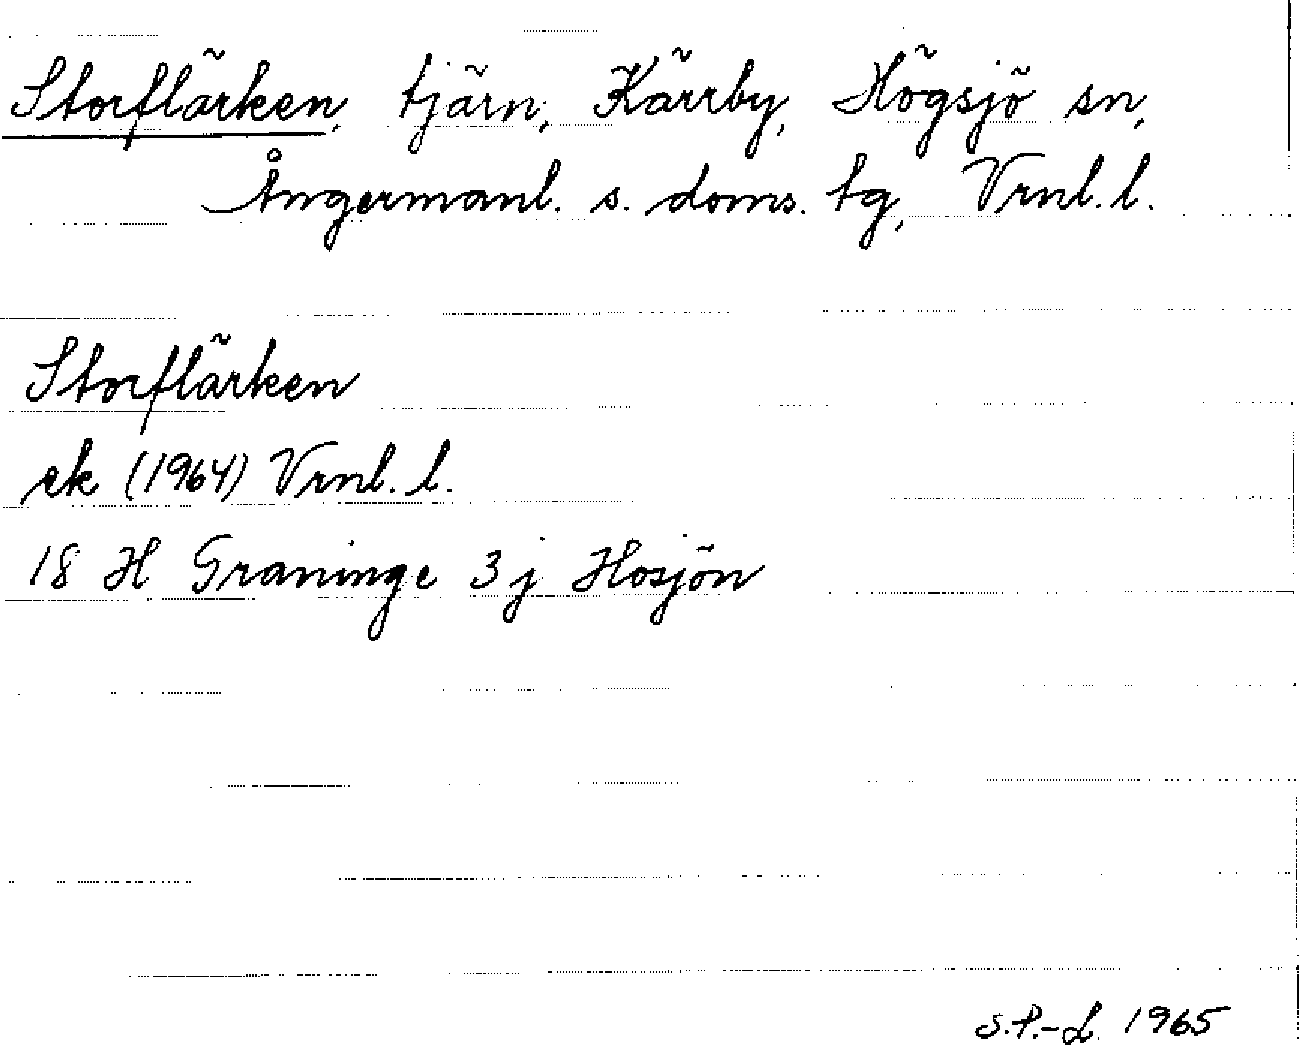 Storflärken, tjärn, Kärrby, Högsjö sn,
Ångermanl. s. doms. tg, Vrnl. l.
Storflärken
ek (1964) Vrnl. l.
18 H Graninge 3 j Hosjön
S.P.-L. 1965